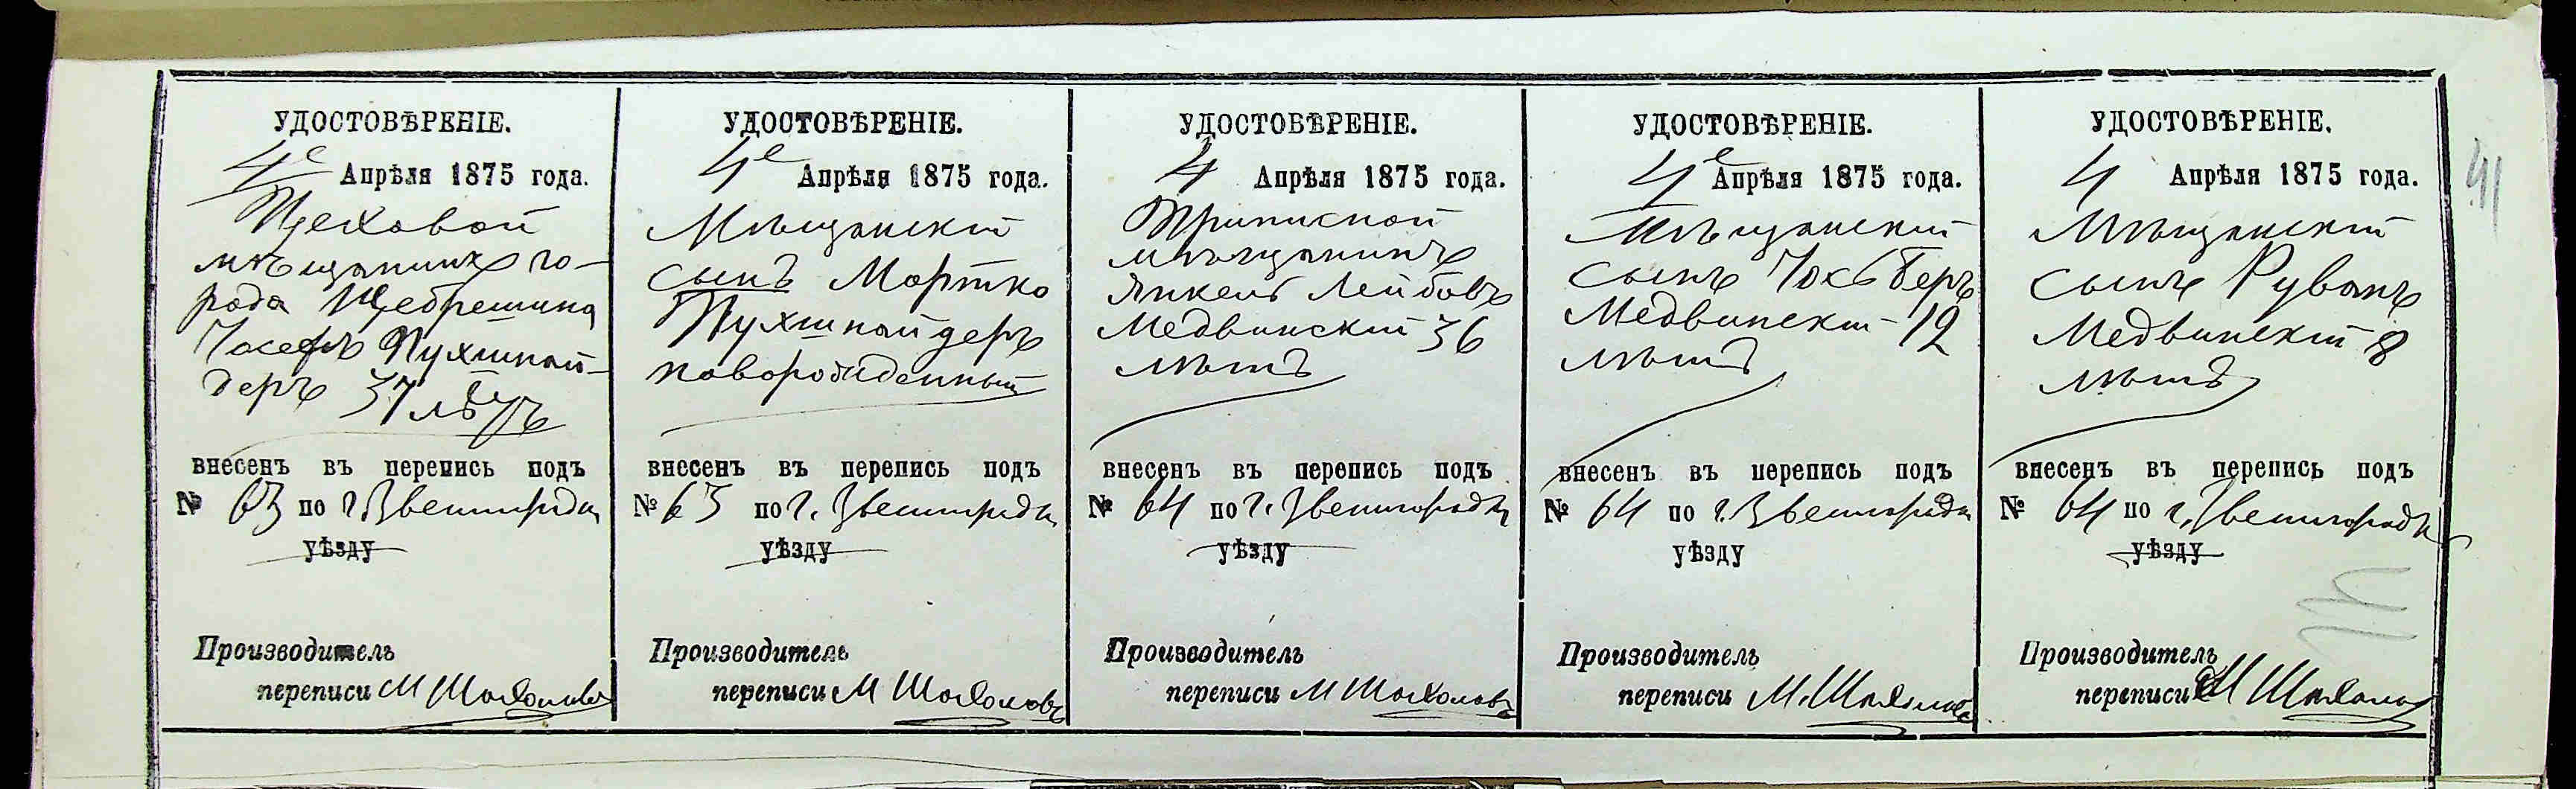 УДОСТОВѢРЕНІЕ.
4е Апрѣля 1875 года.
Цеховой
мѣщанинъ го-
рода Щебрешина
Іосефъ Пухшнай-
деръ 37 лѣтъ
внесенъ въ перепись подъ
№ 63 по г. Звенигородки
уѣзду
Производитель
переписи М
УДОСТОВѢРЕНІЕ.
4е Апрѣля 1875 года.
Мѣщанскій
сынъ Мортко
Пухшнайдеръ
новорожденный
внесенъ въ перепись подъ
№ 63 по г. Звенигородки
уѣзду
Производитель
переписи М
УДОСТОВѢРЕНІЕ.
4 Апрѣля 1875 года.
Приписной
мѣщанинъ
Янкель Лейбовъ
Медвинскій 36
лѣтъ
внесенъ въ перепись подъ
№ 64 по г. Звенигородки
уѣзду
Производитель
переписи М
УДОСТОВѢРЕНІЕ.
4е Апрѣля 1875 года.
Мѣщанскій
сынъ Беръ
Медвинскій 12
лѣтъ
внесенъ въ перепись подъ
№ 64 по г. Звенигородки
уѣзду
Производитель
переписи М.
УДОСТОВѢРЕНІЕ.
4 Апрѣля 1875 года.
Мѣщанскій
сынъ Рувинъ
Медвинскій 8
лѣтъ
внесенъ въ перепись подъ
№ 64 по г. Звенигородки
уѣзду
Производитель
переписи М